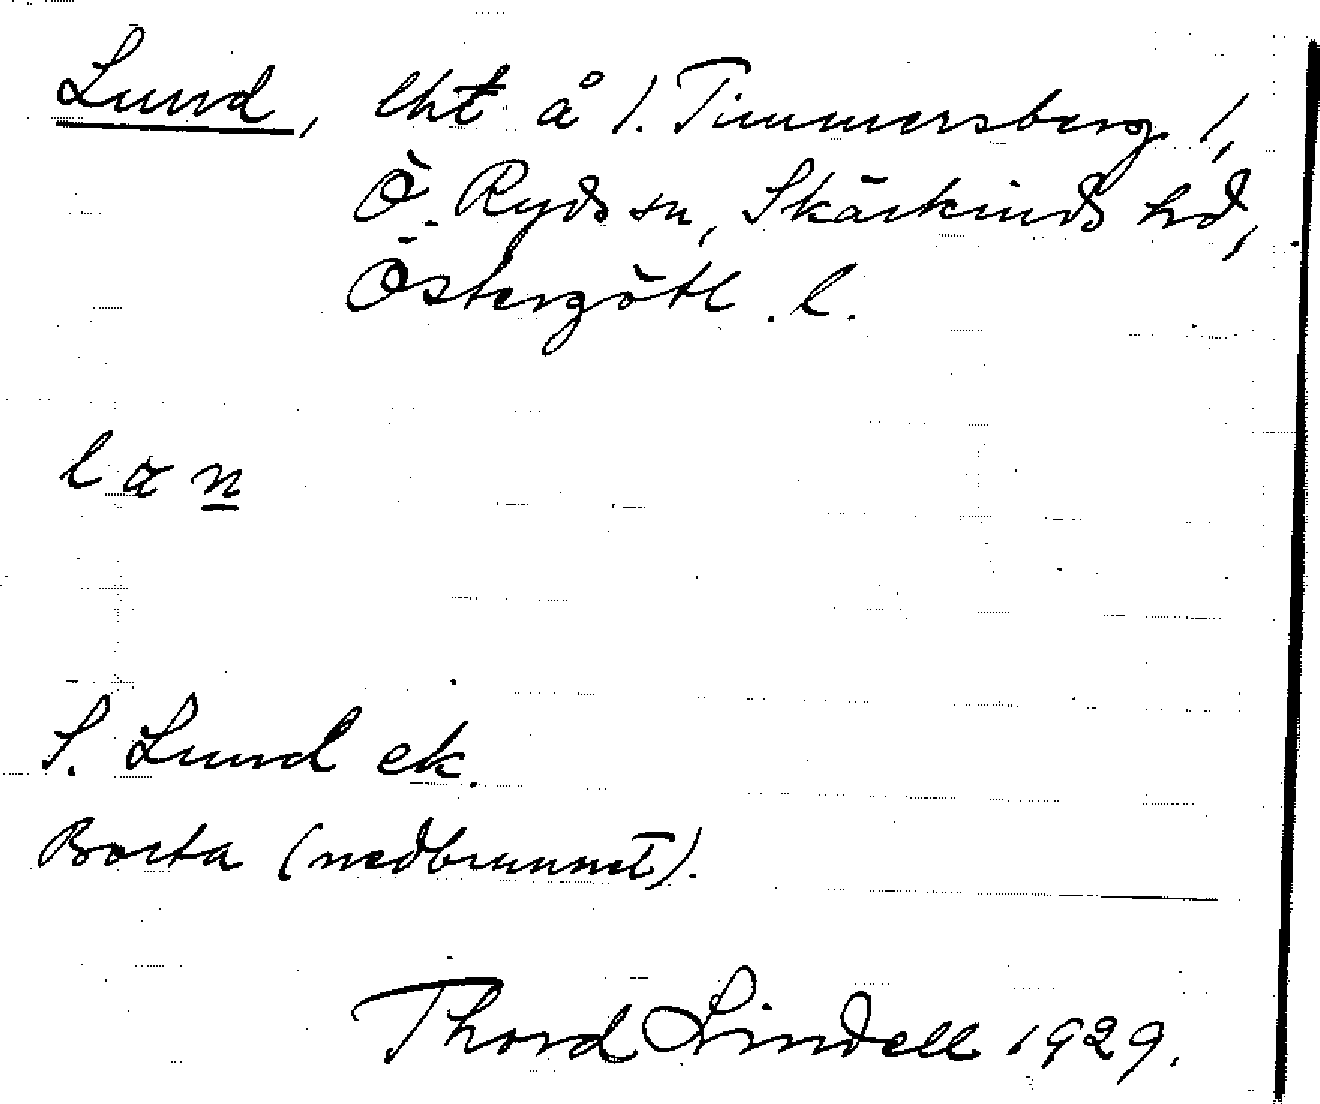 Lund, lht å /. Timmersberg /,
Ö. Ryds sn, Skärkinds hd,
Östergötl. l.
lan
S. Lund ek.
Borta (nedbrunnet).
Thord Lindell 1929.